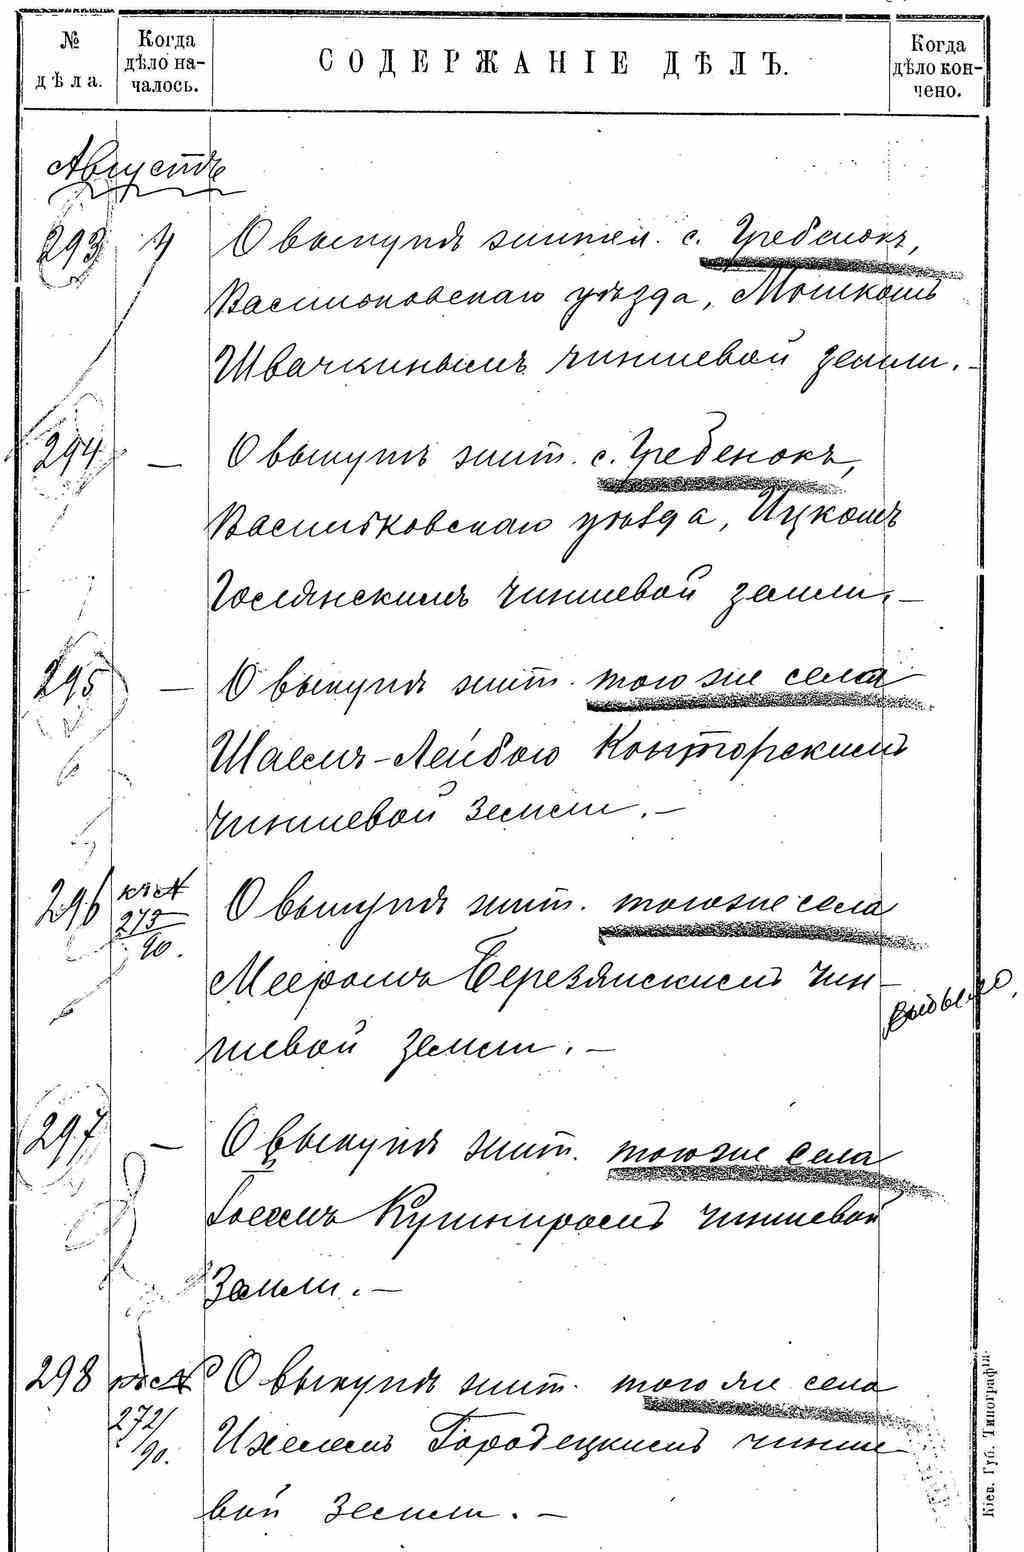 № дѣла.
Когда дѣло на-
чалось.
СОДЕРЖАНІЕ ДѢЛЪ.
Когда дѣло кон-
чено.
Августъ
293 4 О выкупѣ жител. с. Гребенокъ,
Васильковскаго уѣзда, Мошкомъ
Швачкинымъ чиншевой земли.-
294 — О выкупѣ жит. с. Гребенокъ,
Васильковскаго уѣзда, Ицкомъ
Гослянскимъ чиншевой земли.-
295 — О выкупѣ жит. того же села
Шаемъ-Лейбою Конторскимъ
чиншевой земли.-
296 къ № О выкупѣ жит. того же села
273
90.
Мееромъ Березянскимъ чин-
шевой земли.-
выбыло
297 — О выкупѣ жит. того же села
Іосемъ Кушниромъ чиншевой
земли.-
298 къ № О выкупѣ жит. того же села
272/90.
Ихелемъ Городецкимъ чинше
вой земли.-
Кіев. Губ. Типографія.